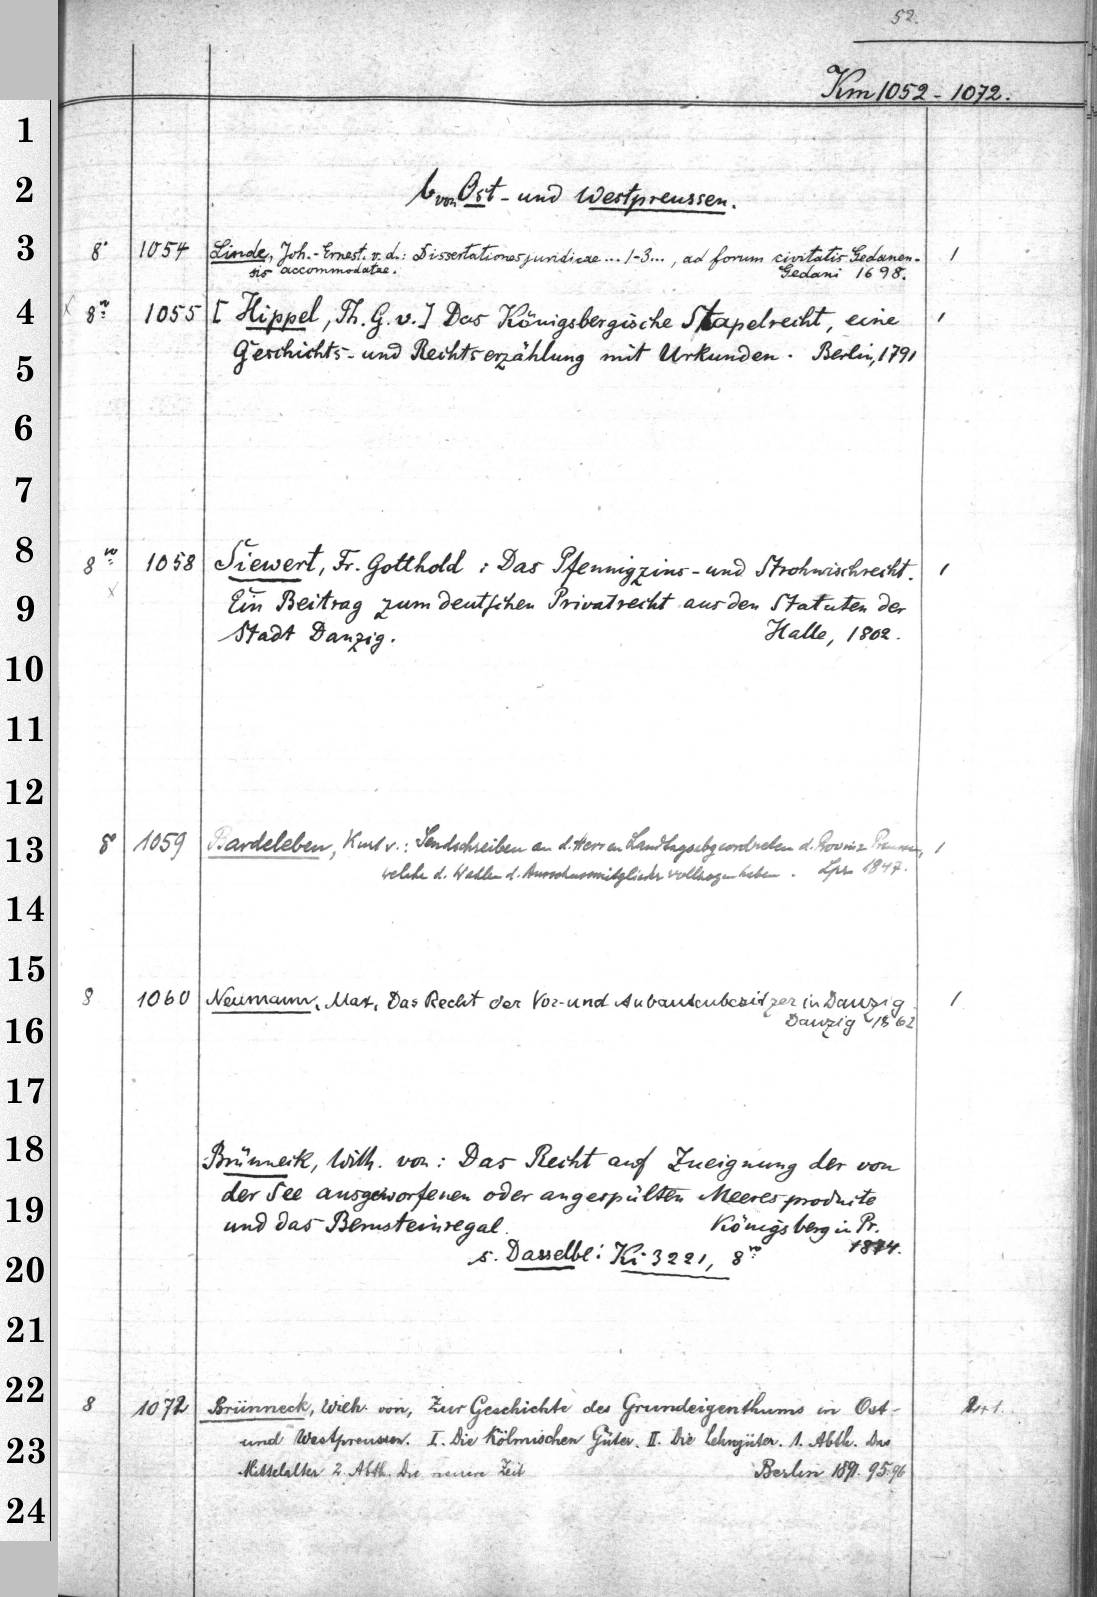 52.
Km 1052 - 1072.
b von Ost- und Westpreussen.
8° 1054 Linde, Joh.-Ernest. v. d.: Dissertationes juridicae ... 1-3 ..., ad forum civitatis Gedanen- 1
sis accommodatae. Gedani 1698.
8° 1055 [Hippel, Th. G. v.] Das Königsbergische Stapelrecht, eine 1
Geschichts- und Rechtserzählung mit Urkunden. Berlin, 1791
8° 1058 Siewert, Fr. Gotthold: Das Pfennigzins- und Strohwischrecht. 1
Ein Beitrag zum deutschen Privatrecht aus den Statuten der
Stadt Danzig. Halle, 1802.
8 1059 Bardeleben, Kurt v.: Sendschreiben an d. Herren Landtagsabgeordneten d. Provinz Preussen, 1
welche d. Wahlen d. Ausschussmitglieder vollzogen haben. Lpz 1847.
8 1060 Neumann, Max, Das Recht der Vor- und Anbautenbesitzer in Danzig. 1
Danzig 1862
Brünneck, Wilh. von: Das Recht auf Zueignung der von
der See ausgeworfenen oder angespülten Meeresprodukte
und das Bernsteinregal. Königsberg in Pr.
1874.
s. Dasselbe: Ki 3221, 8°
8 1072 Brünneck, Wilh. von, Zur Geschichte des Grundeigenthums in Ost- 2+1.
und Westpreussen. I. Die Kölmischen Güter. II. Die Lehngüter. 1. Abth. Das
Mittelalter 2. Abth. Die neuere Zeit Berlin 1891. 95.96
1
2
3
4
5
6
7
8
9
10
11
12
13
14
15
16
17
18
19
20
21
22
23
24